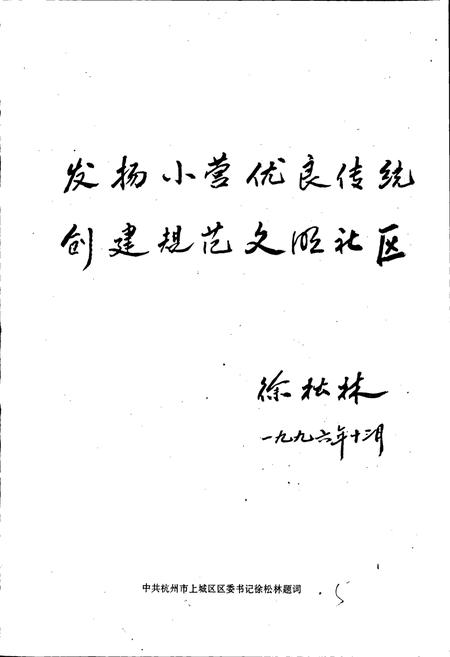 发扬小营优良传统
创建规范文明社区
徐松林
一九九六年十二月
中共杭州市上城区区委书记徐松林题词
5